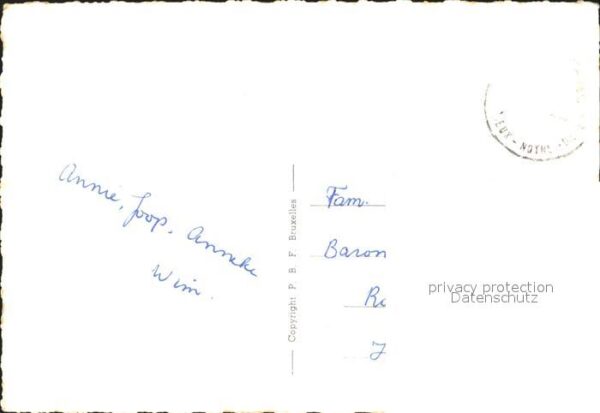 Annie, Joop, Anneke
Wim.
Copyright P. B. F. Bruxelles
Fam.
Baron
privacy protection
Datenschutz